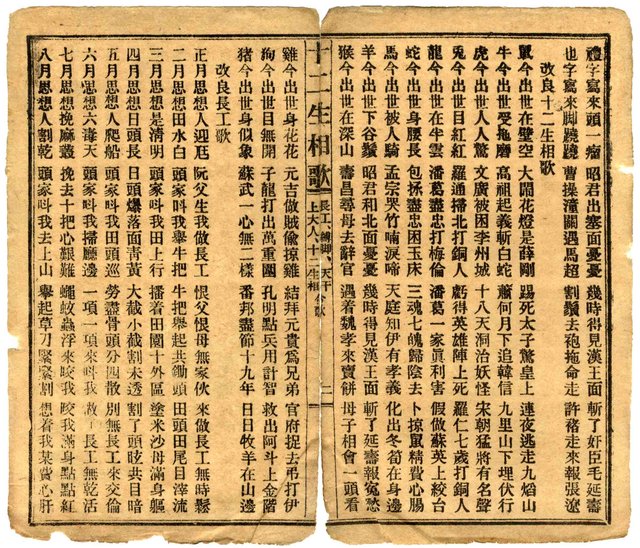 禮字寫來頭一瘤 昭君出塞面憂憂 幾時得見漢王面 斬了奸臣毛延壽
也字寫來脚蹺蹺 曹操潼關遇馬超 割鬚去袍拖命走 許褚走來報張遼
改良十二生相歌
鼠今出世在壁空 大鬧花燈是薛剛 踢死太子驚皇上 連夜逃走九焰山
牛今出世受拖磨 高祖起義斬白蛇 蕭何月下追韓信 九里山下埋伏行
虎今出世人人驚 文廣被困李州城 十八天洞治妖怪 宋朝猛將有名聲
兔今出世目紅紅 羅通掃北打銅人 虧得英雄陣上死 羅仁七歲打銅人
龍今出世在半雲 潘葛盡忠打梅倫 潘葛一家眞利害 假做蘇英上絞台
蛇今出世身腰長 包拯盡忠困玉床 三魂七魄歸陰去 卜掠鼠精費心腸
馬今出世被人騎 孟宗哭竹喃淚啼 天庭知伊有孝義 化出冬荀在身邊
羊今出世下谷鬚 昭君和北面憂憂 幾時得見漢王面 斬了延壽報寃愁
猴今出世在深山 壽昌尋母去辭官 遇着魏孝來賣餅 母子相會一頭看
十二生相歌 長工、縛脚、天干 上大人、十二生相今歌 二
雞今出世身花花 元吉做賊偷掠雞 結拜元貴爲兄弟 官府捉去弔打伊
狗今出世目無開 子龍打出萬重圍 孔明點兵用計智 救出阿斗上金階
猪今出世身似象 蘇武一心無二樣 番邦盡節十九年 日日牧羊在山邊
改良長工歌
正月思想人迎尫 阮父生我做長工 恨父恨母無家伙 來做長工無時鬆
二月思想田水白 頭家呌我舉牛把 牛把舉起共鋤頭 田頭田尾日滓流
三月思想是清明 頭家呌我田上行 播着田園十外區 塗米沙母滿身軀
四月思想日頭長 日頭爆落面靑黃 大截小截割未透 割了頭眩共目暗
五月思想人爬船 頭家呌我田頭巡 勞盡骨頭分四散 別無長工來交倫
六月思想六毒天 頭家呌我掃廳邊 一項一項來呌我 長工無乾活
七月思想挽麻叢 挽去十把心艱難 蠅蚊蟲浮來咬我 咬我滿身點點紅
八月思想人割乾 頭家呌我去上山 舉起草刀緊緊割 想着我某費心肝